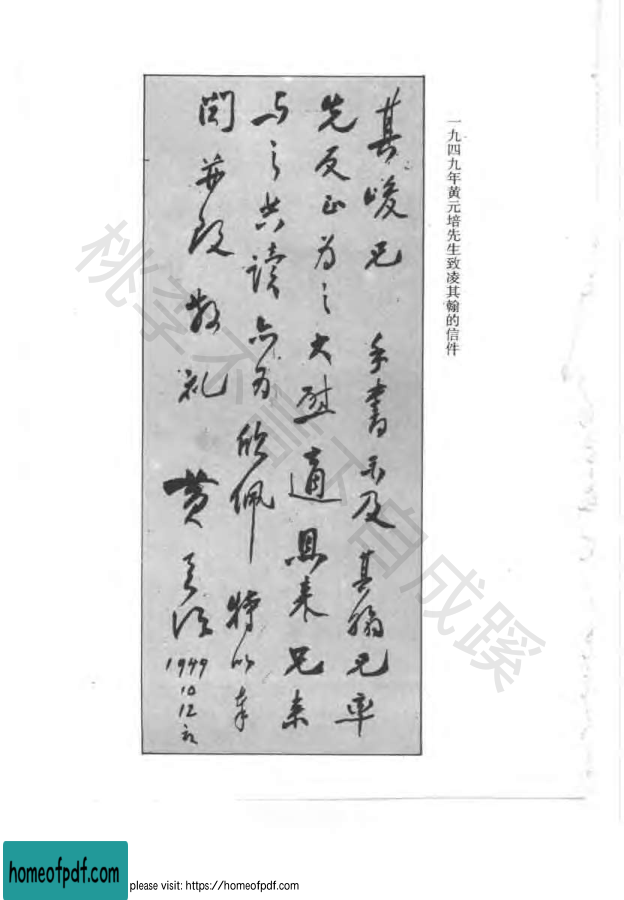 一九四九年黄元培先生致凌其翰的信件
其峻兄 手書示及其翰兄率
先反正为之大慰適恩来兄来
与之共读亦为欣佩特以奉
闻并致敬礼 黄炎培
1949
10
12
桃李不言下自成蹊
homeofpdf.com
please visit: https://homeofpdf.com